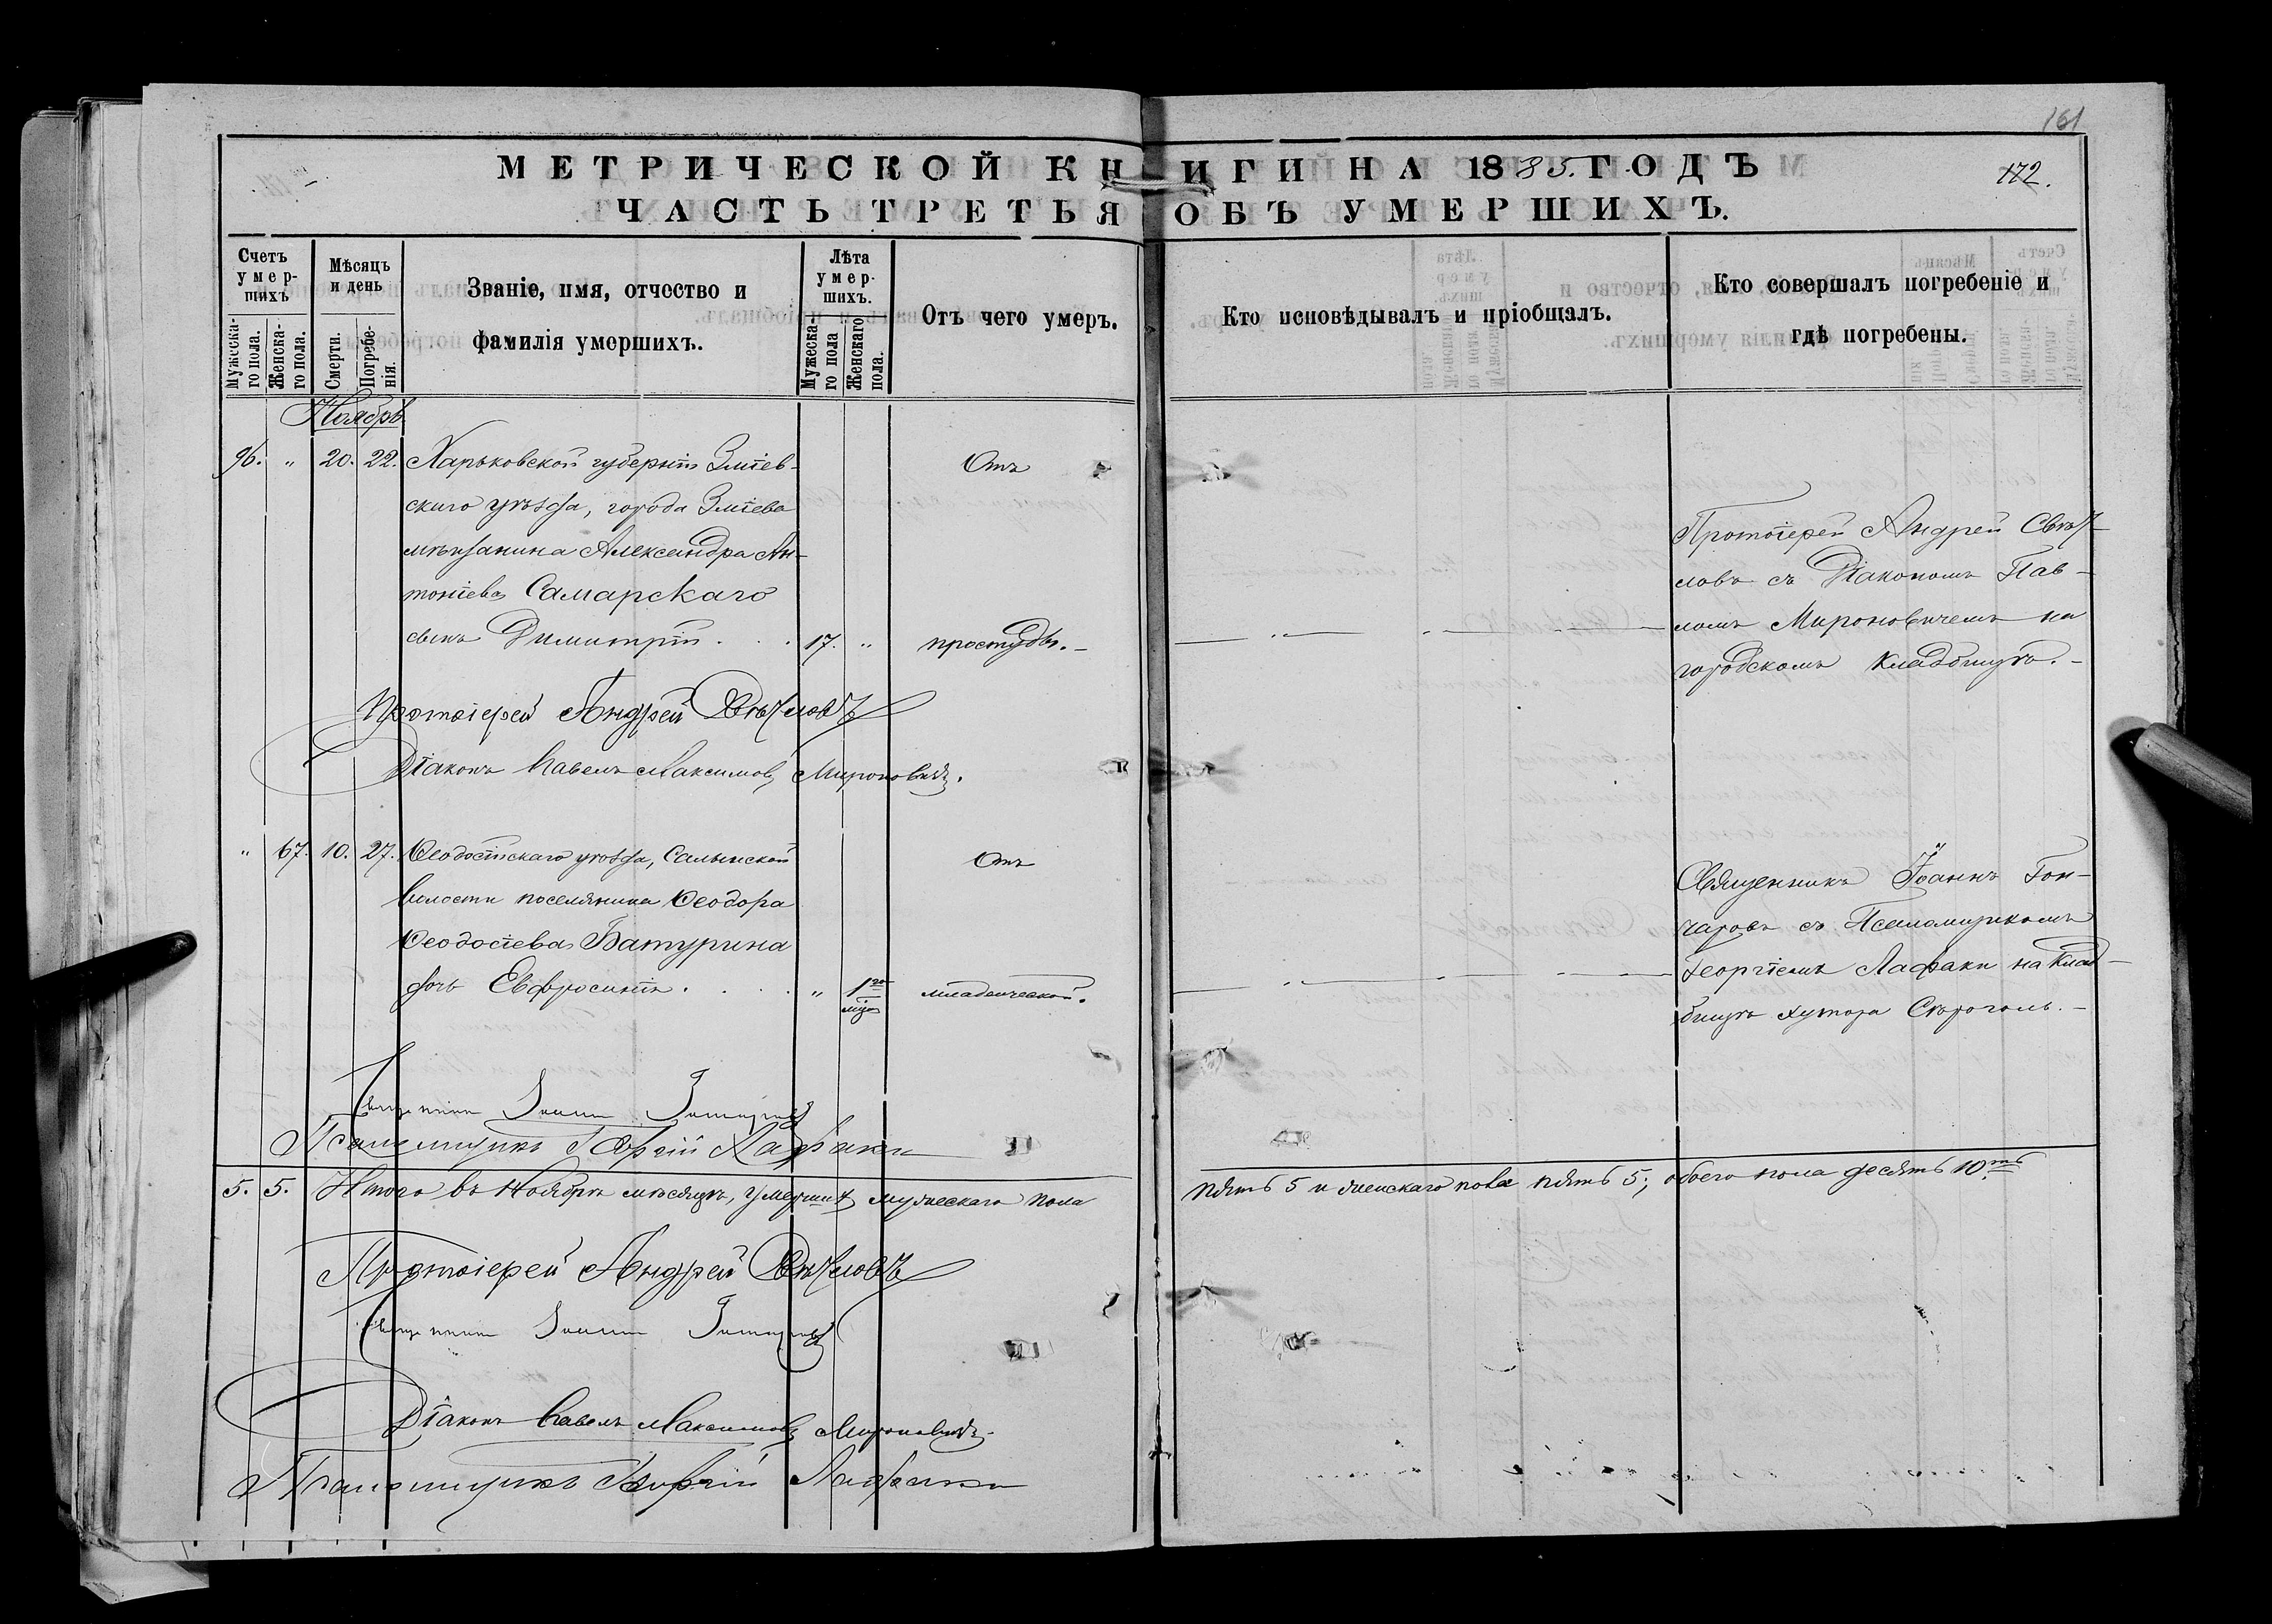 161
МЕТРИЧЕСКОЙ КНИГИ НА 1885. ГОДЪ
172.
ЧАСТЬ ТРЕТЬЯ ОБЪ УМЕРШИХЪ.
Счетъ умер-шихъ
Мужеска-го пола.
Женска-го пола.
Мѣсяцъ и день
Смерти.
Погребе-нія.
Званіе, имя, отчество и
фамилія умершихъ.
Лѣта умер-шихъ.
Мужеска-го пола
Женскаго пола.
Отъ чего умеръ.
Кто исповѣдывалъ и пріобщалъ.
Кто совершалъ погребеніе и
гдѣ погребены.
Ноябрь
96. " 20. 22. Харьковской губерніи Зміев-
скаго уѣзда, города Зміева
мѣщанина Александра Ан-
тоніева Самарскаго
сынъ Димитрій . . . 17. "
Отъ
простуды.
Протоіерей Андрей Свѣт-
ловъ съ Діакономъ Пав-
ломъ Мироновичемъ на
городскомъ кладбищѣ.
Протоіерей Андрей Свѣтловъ
Діаконъ Павелъ Максимовъ Мироновичъ.
" 67. 10. 27. Ѳеодосійскаго уѣзда, Салынской
волости поселянина Ѳеодора
Ѳеодосіева Батурина
дочь Евфросинія . . . " 1го мца
Отъ
младенческой.
Священникъ Іоаннъ Гон-
чаровъ съ Псаломщикомъ
Георгіемъ Лафаки на клад-
бищѣ хутора Сѣроголь.
Священникъ Іоаннъ Гончаровъ
Псаломщикъ Георгій Лафаки
5. 5. Итого въ Ноябрѣ мѣсяцѣ, умершихъ мужескаго пола пять 5 и женскаго пола пять 5; обоего пола десять 10ть.
Протоіерей Андрей Свѣтловъ
Священникъ Іоаннъ Гончаровъ
Діаконъ Павелъ Максимовъ Мироновичъ.
Псаломщикъ Георгій Лафаки